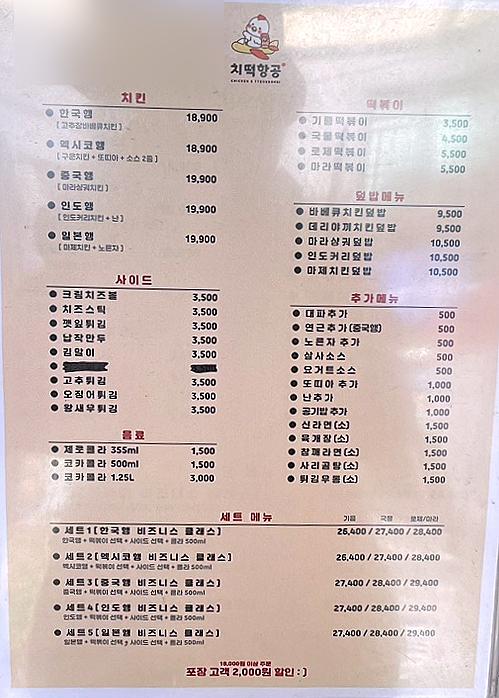 치떡항공
CHICKEN & TTEOKBOKKI
치킨
한국행 18,900
[ 고추장바베큐치킨 ]
멕시코행 18,900
[ 구운치킨 + 또띠아 + 소스 2종 ]
중국행 19,900
[ 마라샹궈치킨 ]
인도행 19,900
[ 인도커리치킨 + 난 ]
일본행 19,900
[ 마제치킨 + 노른자 ]
사이드
크림치즈볼 3,500
치즈스틱 3,500
깻잎튀김 3,500
납작만두 3,500
김말이 3,500
고추튀김 3,500
오징어튀김 3,500
왕새우튀김 3,500
음료
제로콜라 355ml 1,500
코카콜라 500ml 1,500
코카콜라 1.25L 3,000
떡볶이
기름떡볶이 3,500
국물떡볶이 4,500
로제떡볶이 5,500
마라떡볶이 5,500
덮밥메뉴
바베큐치킨덮밥 9,500
데리야끼치킨덮밥 9,500
마라샹궈덮밥 10,500
인도커리덮밥 10,500
마제치킨덮밥 10,500
추가메뉴
대파추가 500
연근추가(중국행) 500
노른자 추가 500
살사소스 500
요거트소스 500
또띠아 추가 1,000
난추가 1,000
공기밥추가 1,000
신라면(소) 1,500
육개장(소) 1,500
참깨라면(소) 1,500
사리곰탕(소) 1,500
튀김우동(소) 1,500
세트 메뉴 기름 국물 로제/마라
세트1 [한국행 비즈니스 클래스] 26,400 / 27,400 / 28,400
한국행 + 떡볶이 선택 + 사이드 선택 + 콜라 500ml
세트2 [멕시코행 비즈니스 클래스] 26,400 / 27,400 / 28,400
멕시코행 + 떡볶이 선택 + 사이드 선택 + 콜라 500ml
세트3 [중국행 비즈니스 클래스] 27,400 / 28,400 / 29,400
중국행 + 떡볶이 선택 + 사이드 선택 + 콜라 500ml
세트4 [인도행 비즈니스 클래스] 27,400 / 28,400 / 29,400
인도행 + 떡볶이 선택 + 사이드 선택 + 콜라 500ml
세트5 [일본행 비즈니스 클래스] 27,400 / 28,400 / 29,400
일본행 + 떡볶이 선택 + 사이드 선택 + 콜라 500ml
18,000원 이상 주문
포장 고객 2,000원 할인 : )